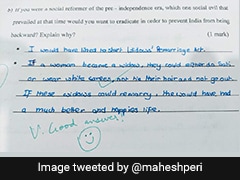 b) If you were a social reformer of the pre - independence era, which one social evil that
prevailed at that time would you want to eradicate in order to prevent India from being
backward? Explain why?
(1 mark)
• I would have liked to start Widows' Remarriage Act.
• If a woman became a widow, they could either do Sati
or wear white sarees, not tie their hair and not go out.
If these widows could remarry, she would have had
a much better and happier life.
V. Good answer!
Image tweeted by @maheshperi